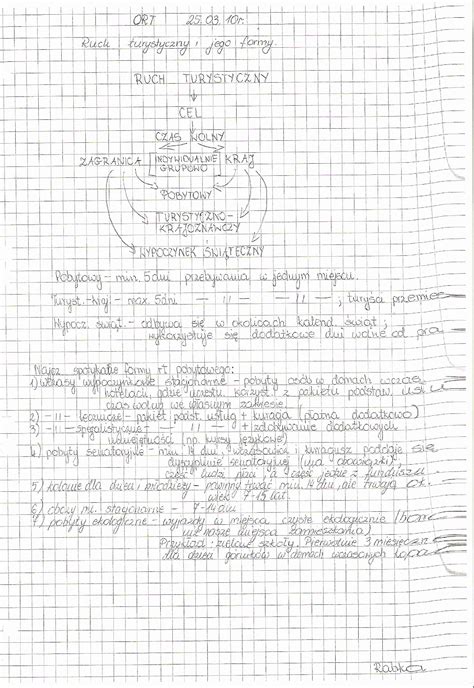 ORT 25.03.10r.
Ruch turystyczny i jego formy.
RUCH TURYSTYCZNY
CEL
CZAS WOLNY
ZAGRANICA INDYWIDUALNIE GRUPOWO KRAJ
POBYTOWY
TURYSTYCZNO-
KRAJOZNAWCZY
WYPOCZYNEK ŚWIĄTECZNY
Pobytowy - min. 5 dni przebywania w jednym miejscu.
Turyst.-kraj - max. 5 dni — 11 — — 11 — ; turysta przemie
Wypocz. świąt. - odbywa się w okolicach kalend. świąt,
wykorzystuje się dodatkowe dni wolne od pra
Najcz. spotykane formy rt pobytowego:
1) wczasy wypoczynkowe stacjonarne - pobyty osób w domach wczas
hotelach, gdzie uczestn. korzyst. z pakietu podstaw. usłu
czas wolny we własnym zakresie
2) - 11 - lecznicze - pakiet podst. usług + kuracja (płatna dodatkowo)
3) - 11 - specjalistyczne - 11 - + zdobywanie dodatkowych
umiejętności (np. kursy językowe)
4) pobyty senatoryjne - min. 14 dni, kuracjusz poddaje się
dyscyplinie senatoryjnej
część ludzi płaci, a część jedzie z funduszu
5) kolonie dla dzieci i młodzieży - powinny trwać min. 14 dni, ale trwają ok.
wiek 7-15 lat.
6) obozy mł. stacjonarne - 7-14 dni
7) pobyty ekologiczne - wyjazdy w miejsca czyste ekologicznie
niż nasze miejsca zamieszkania)
Przykład: zielone szkoły. Pierwotnie 3 miesięczn
dla dzieci górników w domach wczasowych
Rabka